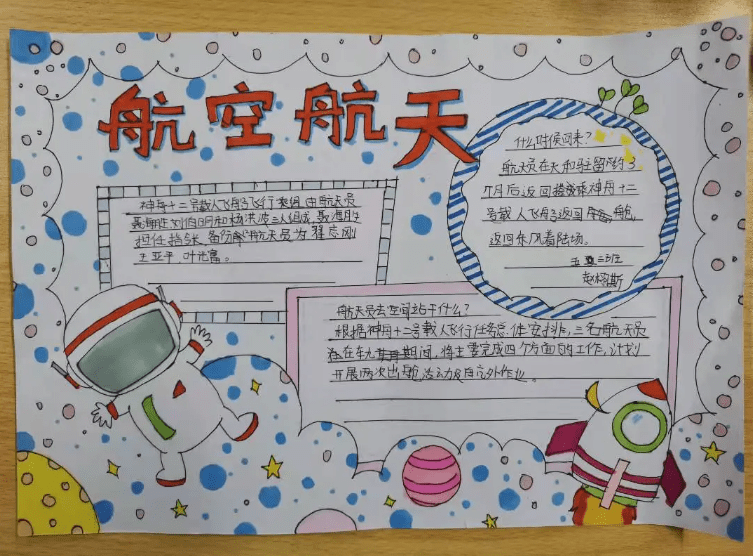 航空航天
神舟十二号载人飞船飞行乘组由航天员
聂海胜、刘伯明和杨洪波三人组成，聂海胜
担任指令长，备份航天员为翟志刚
王亚平、叶光富。
什么时候回来？
航天员在天和驻留约3
个月后返回搭乘神舟十二
号载人飞船返回舱，
返回东风着陆场。
五 三班
赵 斯
航天员去空间站干什么？
根据神舟十二号载人飞行任务总体安排，三名航天员
在轨 期间，将主要完成四个方面的工作，计划
开展两次出舱活动及自 外作业。